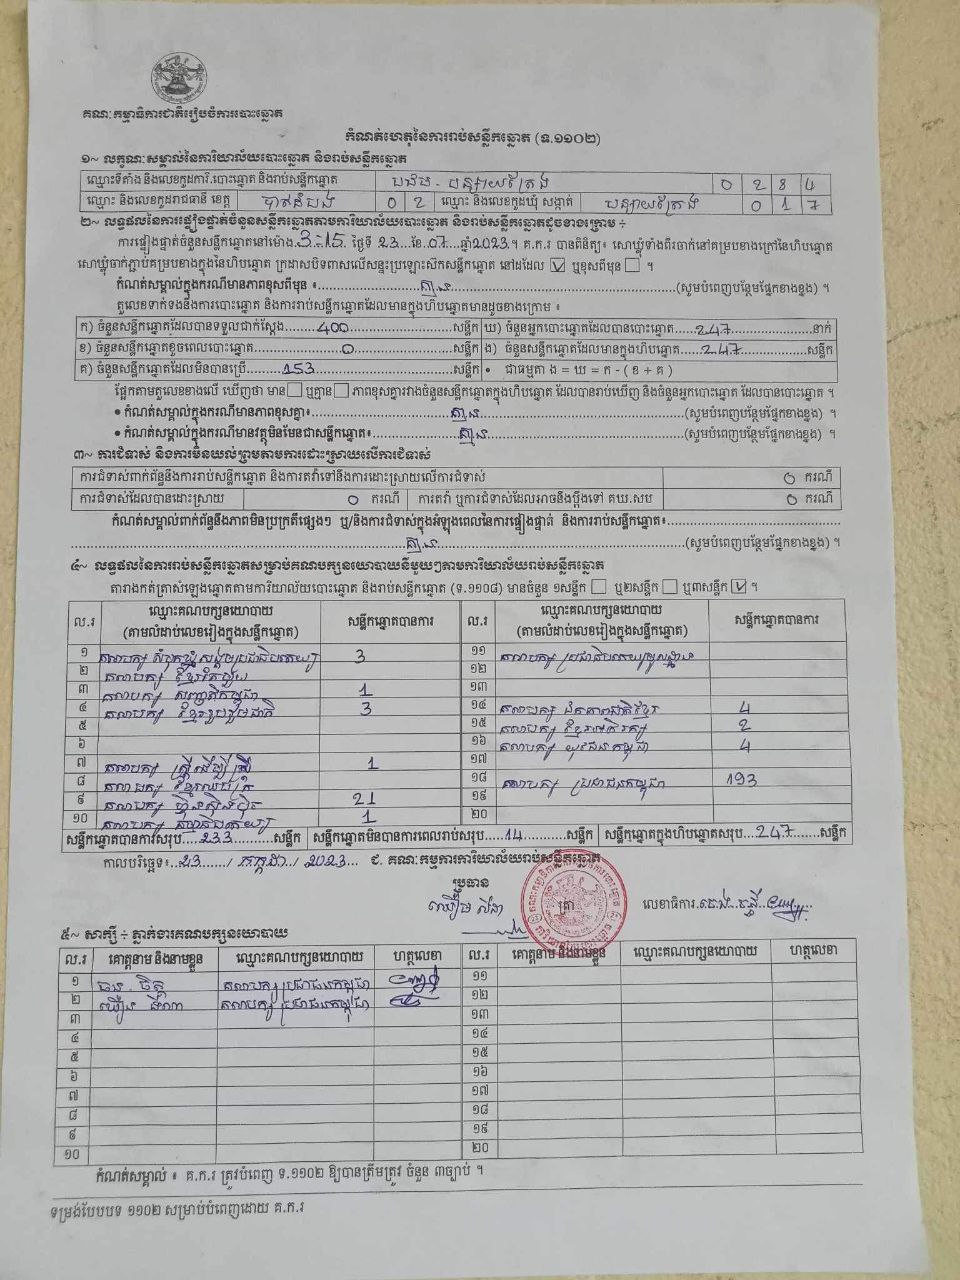 គណៈកម្មាធិការជាតិរៀបចំការបោះឆ្នោត
កំណត់ហេតុនៃការរាប់សន្លឹកឆ្នោត (ទ.១១០២)
១~ លក្ខណៈសម្គាល់នៃការិយាល័យបោះឆ្នោត និងរាប់សន្លឹកឆ្នោត
ឈ្មោះទីតាំង និងលេខកូដការិ.បោះឆ្នោត និងរាប់សន្លឹកឆ្នោត បន្សាយត្រែង 0 2 8 4
ឈ្មោះ និងលេខកូដរាជធានី ខេត្ត បាត់ដំបង 0 2 ឈ្មោះ និងលេខកូដឃុំ សង្កាត់ បន្សាយត្រែង 0 1 7
២~ លទ្ធផលនៃការផ្ទៀងផ្ទាត់ចំនួនសន្លឹកឆ្នោតតាមការិយាល័យបោះឆ្នោត និងរាប់សន្លឹកឆ្នោតដូចខាងក្រោម ÷
ការផ្ទៀងផ្ទាត់ចំនួនសន្លឹកឆ្នោតនៅម៉ោង 3:15 ថ្ងៃទី 23 ខែ 07 ឆ្នាំ 2023 ។ គ.ក.រ បានពិនិត្យ៖ សោឃ្លុំទាំងពីរចាក់នៅគម្របខាងក្រៅនៃហិបឆ្នោត
សោឃ្លុំចាក់ភ្ជាប់គម្របខាងក្នុងនៃហិបឆ្នោត ក្រដាសបិទពាសលើសន្ទះប្រឡោះស៊កសន្លឹកឆ្នោត នៅដដែល ☑ ឬខុសពីមុន ☐ ។
កំណត់សម្គាល់ក្នុងករណីមានភាពខុសពីមុន ៖ គ្មាន (សូមបំពេញបន្ថែមផ្នែកខាងខ្នង) ។
តួលេខទាក់ទងនឹងការបោះឆ្នោត និងការរាប់សន្លឹកឆ្នោតដែលមានក្នុងហិបឆ្នោតមានដូចខាងក្រោម ៖
ក) ចំនួនសន្លឹកឆ្នោតដែលបានទទួលជាក់ស្តែង 400 សន្លឹក ឃ) ចំនួនអ្នកបោះឆ្នោតដែលបានបោះឆ្នោត 247 នាក់
ខ) ចំនួនសន្លឹកឆ្នោតខូចពេលបោះឆ្នោត 0 សន្លឹក ង) ចំនួនសន្លឹកឆ្នោតដែលមានក្នុងហិបឆ្នោត 247 សន្លឹក
គ) ចំនួនសន្លឹកឆ្នោតដែលមិនបានប្រើ 153 សន្លឹក • ជាធម្មតា ង = ឃ = ក - ( ខ + គ )
ផ្អែកតាមតួលេខខាងលើ ឃើញថា មាន ☐ ឬគ្មាន ☐ ភាពខុសគ្នារវាងចំនួនសន្លឹកឆ្នោតក្នុងហិបឆ្នោត ដែលបានរាប់ឃើញ និងចំនួនអ្នកបោះឆ្នោត ដែលបានបោះឆ្នោត ។
• កំណត់សម្គាល់ក្នុងករណីមានភាពខុសគ្នា៖ គ្មាន (សូមបំពេញបន្ថែមផ្នែកខាងខ្នង) ។
• កំណត់សម្គាល់ក្នុងករណីមានវត្ថុមិនមែនជាសន្លឹកឆ្នោត៖ គ្មាន (សូមបំពេញបន្ថែមផ្នែកខាងខ្នង) ។
៣~ ការជំទាស់ និងការមិនយល់ព្រមតាមការដោះស្រាយលើការជំទាស់
ការជំទាស់ពាក់ព័ន្ធនឹងការរាប់សន្លឹកឆ្នោត និងការតវ៉ាទៅនឹងការដោះស្រាយលើការជំទាស់ 0 ករណី
ការជំទាស់ដែលបានដោះស្រាយ 0 ករណី ការតវ៉ា ឬការជំទាស់ដែលអាចនឹងប្តឹងទៅ គឃ.សប 0 ករណី
កំណត់សម្គាល់ពាក់ព័ន្ធនឹងភាពមិនប្រក្រតីផ្សេងៗ ឬ/និងការជំទាស់ក្នុងអំឡុងពេលនៃការផ្ទៀងផ្ទាត់ និងការរាប់សន្លឹកឆ្នោត៖
គ្មាន (សូមបំពេញបន្ថែមផ្នែកខាងខ្នង) ។
៤~ លទ្ធផលនៃការរាប់សន្លឹកឆ្នោតសម្រាប់គណបក្សនយោបាយនីមួយៗតាមការិយាល័យរាប់សន្លឹកឆ្នោត
តារាងកត់ត្រាសំឡេងឆ្នោតតាមការិយាល័យបោះឆ្នោត និងរាប់សន្លឹកឆ្នោត (ទ.១១០៨) មានចំនួន ១សន្លឹក ☐ ឬ២សន្លឹក ☐ ឬ៣សន្លឹក ☑ ។
ល.រ ឈ្មោះគណបក្សនយោបាយ (តាមលំដាប់លេខរៀងក្នុងសន្លឹកឆ្នោត) សន្លឹកឆ្នោតបានការ ល.រ ឈ្មោះគណបក្សនយោបាយ (តាមលំដាប់លេខរៀងក្នុងសន្លឹកឆ្នោត) សន្លឹកឆ្នោតបានការ
១ គណបក្ស សំបុកឃ្មុំសង្គមប្រជាធិបតេយ្យ 3 ១១ គណបក្ស ប្រជាធិបតេយ្យមូលដ្ឋាន
២ គណបក្ស ខ្មែរតែមួយ ១២
៣ គណបក្ស សញ្ជាតិកម្ពុជា 1 ១៣
៤ គណបក្ស ខ្មែររួបរួមជាតិ 3 ១៤ គណបក្ស ឯកភាពជាតិខ្មែរ 4
៥ ១៥ គណបក្ស ខ្មែរអភិរក្ស 2
៦ ១៦ គណបក្ស យុវជនកម្ពុជា 4
៧ គណបក្ស ស្ត្រីដើម្បីស្ត្រី 1 ១៧
៨ គណបក្ស ខ្មែរឈប់ក្រ ១៨ គណបក្ស ប្រជាជនកម្ពុជា 193
៩ គណបក្ស ហ្វ៊ុនស៊ិនប៉ិច 21 ១៩
១០ គណបក្ស ធម្មាធិបតេយ្យ 1 ២០
សន្លឹកឆ្នោតបានការសរុប 233 សន្លឹក សន្លឹកឆ្នោតមិនបានការពេលរាប់សរុប 14 សន្លឹក សន្លឹកឆ្នោតក្នុងហិបឆ្នោតសរុប 247 សន្លឹក
កាលបរិច្ឆេទ៖ 23 / កក្កដា / 2023 ជ. គណៈកម្មការការិយាល័យរាប់សន្លឹកឆ្នោត
ប្រធាន
ត្រា
លេខាធិការ
៥~ សាក្សី ÷ ភ្នាក់ងារគណបក្សនយោបាយ
ល.រ គោត្តនាម និងនាមខ្លួន ឈ្មោះគណបក្សនយោបាយ ហត្ថលេខា ល.រ គោត្តនាម និងនាមខ្លួន ឈ្មោះគណបក្សនយោបាយ ហត្ថលេខា
១ គណបក្ស ប្រជាជនកម្ពុជា ១១
២ គណបក្ស ប្រជាជនកម្ពុជា ១២
៣ ១៣
៤ ១៤
៥ ១៥
៦ ១៦
៧ ១៧
៨ ១៨
៩ ១៩
១០ ២០
កំណត់សម្គាល់ ៖ គ.ក.រ ត្រូវបំពេញ ទ.១១០២ ឱ្យបានត្រឹមត្រូវ ចំនួន ៣ច្បាប់ ។
ទម្រង់បែបបទ ១១០២ សម្រាប់បំពេញដោយ គ.ក.រ